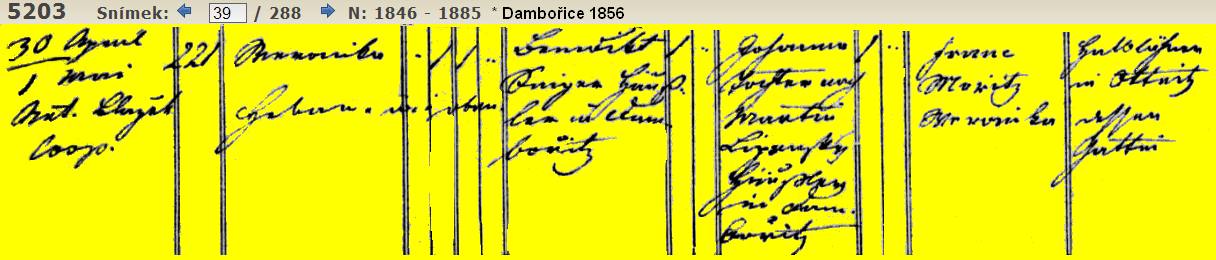 5203 Snímek: 39 / 288 N: 1846 - 1885 * Dambořice 1856
30 April
1 Mai
Ant.
Coop.
221
Veronika
Benedikt
Singer Häus-
ler in Dam-
bořitz
Johanna
Tochter nach
Martin
Lipansky
Häusler
in Dam-
bořitz
Franc
Moritz
Veronika
Halblöhner
in Ottnitz
dessen
Gattin